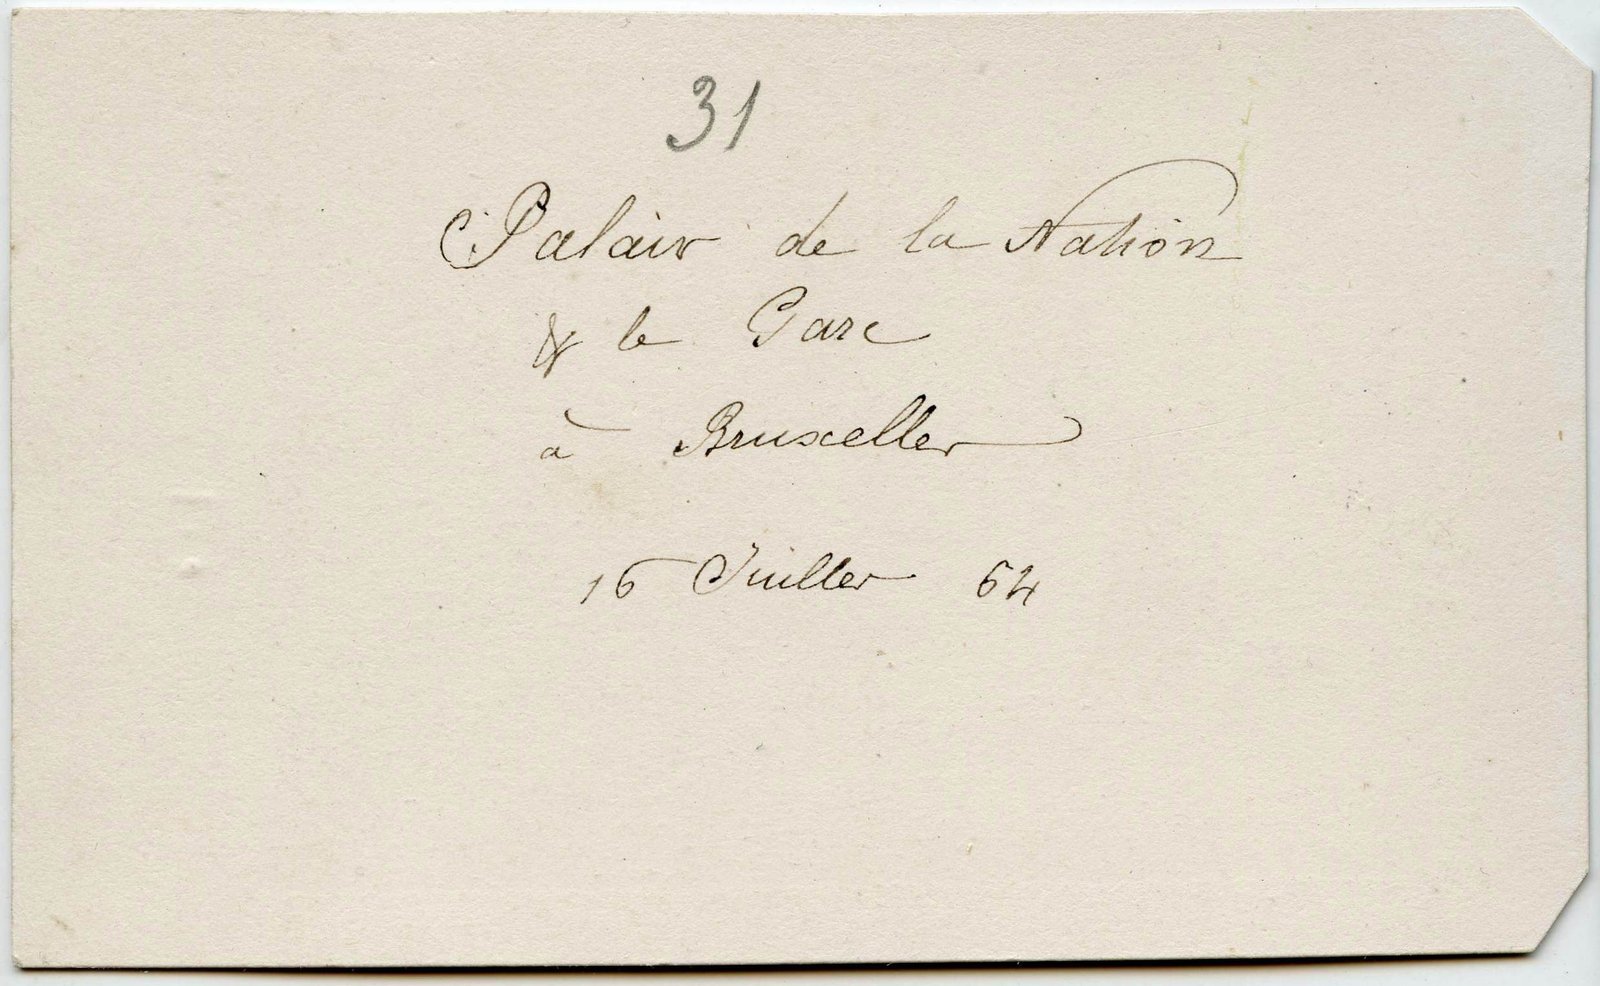 31
Palais de la Nation
& le Parc
à Bruxelles
16 Juillet 64